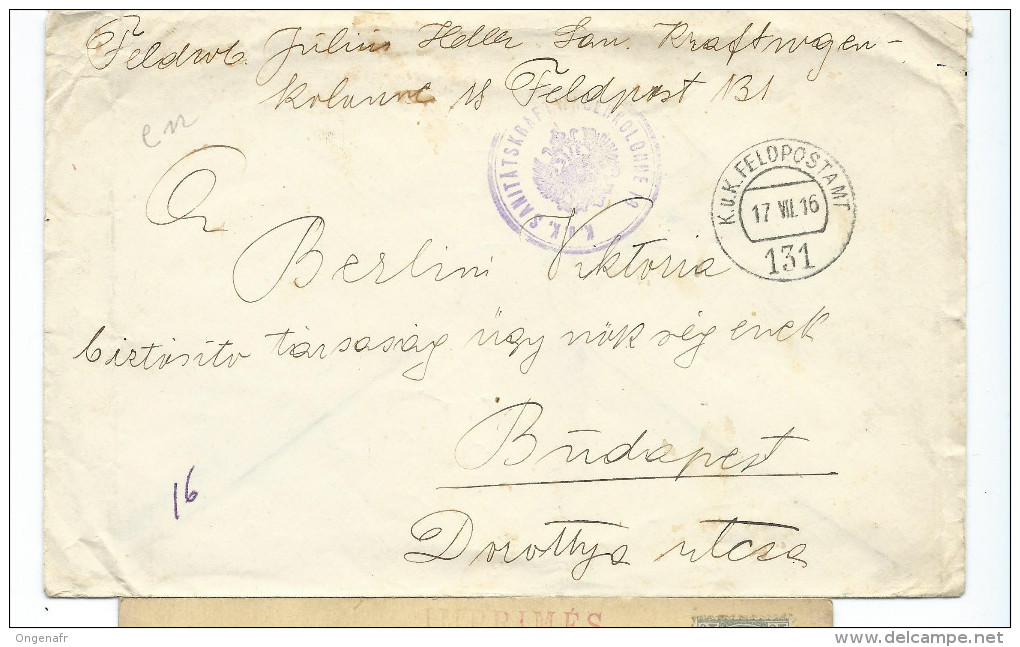 Feldwb. Július Heller San. Kraftwagen-
kolonne 18 Feldpost 131
K.u.K. SANITÄTSKRAFTWAGENKOLONNE
K.u.K. FELDPOSTAMT
17 VII. 16
131
A
Berlini Viktoria
biztósitó társaság ügynökségenek
Budapest
16
Dorottya utcza
IMPRIMÉS
Ongenafr
www.delcampe.net